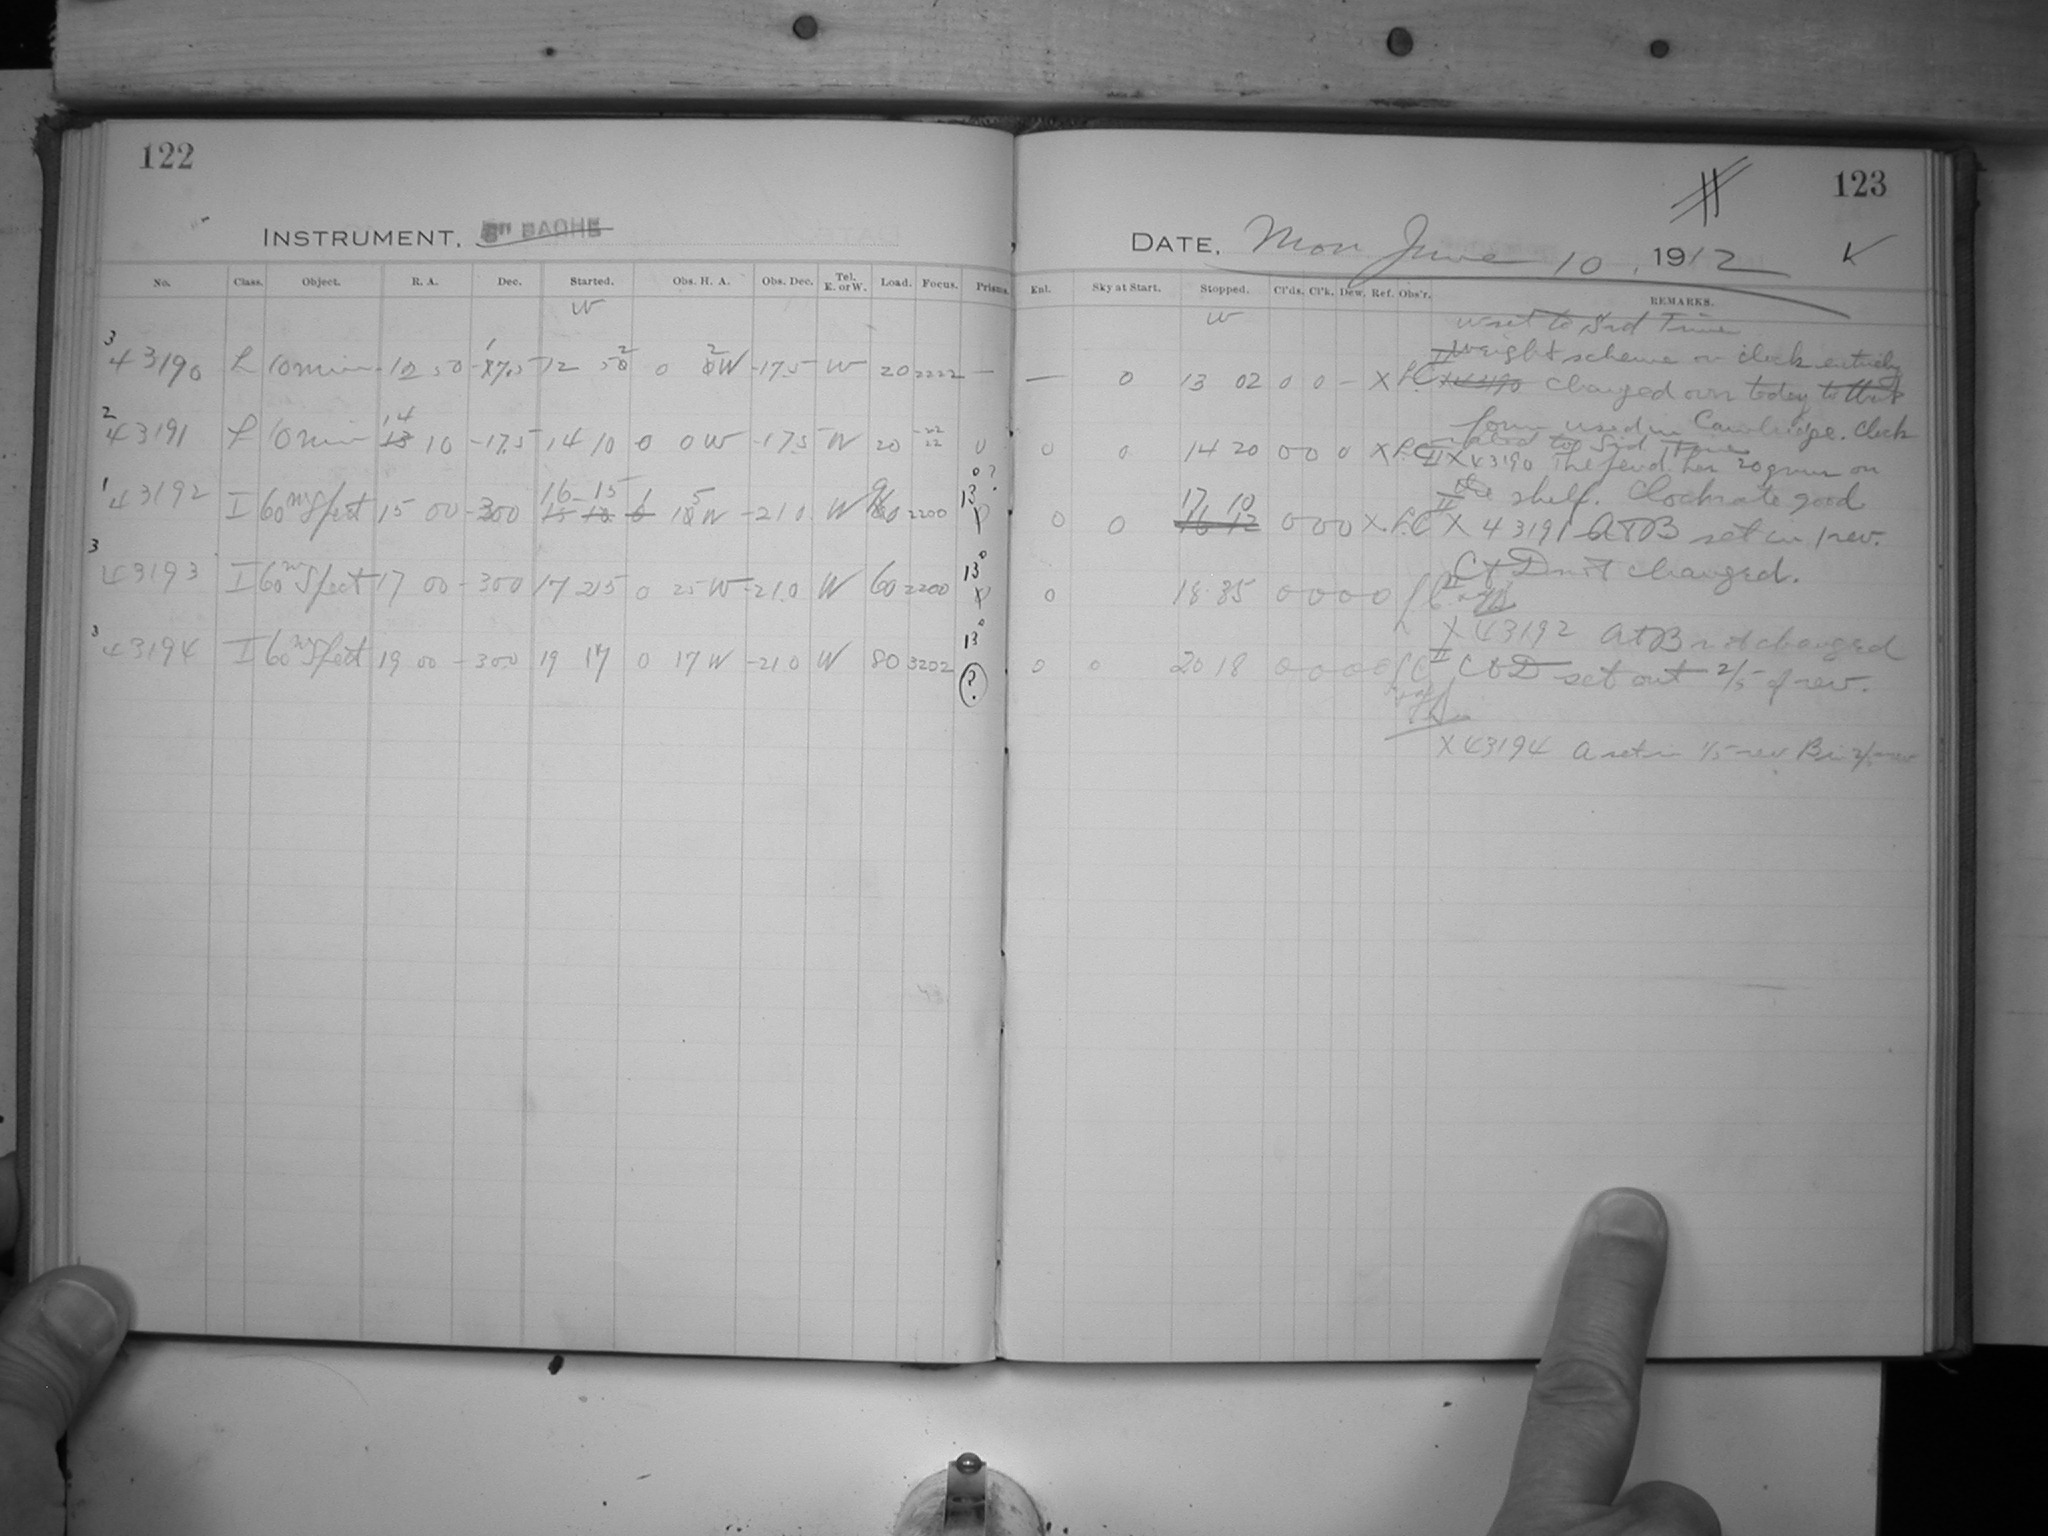 122
INSTRUMENT. 8" BACHE
No. Class. Object. R. A. Dec. Started. Obs. H. A. Obs. Dec. Tel. E. or W. Load. Focus. Prisms.
W
3 43190 L 10 min 12 50 -17.5 12 52 0 2 W -17.5 W 20 2222 —
2 43191 L 10 min 14 10 -17.5 14 10 0 0 W -17.5 W 20 2222 0
1 43192 I 60m Spect 15 00 -300 16 15 15 W -21.0 W 60 2200 13 0?
3 43193 I 60m Spect 17 00 -300 17 25 0 25 W -21.0 W 60 2200 13°
3 43194 I 60m Spect 19 00 -300 19 17 0 17 W -21.0 W 80 3202 13° ?
123
DATE, Mon June 10, 1912
Enl. Sky at Start. Stopped. Cl'ds. Cl'k. Dew. Ref. Obs'r. REMARKS.
W
— 0 13 02 0 0 — X
0 0 14 20 0 0 0 X
0 0 17 10 0 0 0 X
0 18 35 0 0 0 0
0 0 20 18 0 0 0 0
W set to Sid Time
Weight scheme on clock entirely
changed over today to that
form used in Cambridge. Clock
rated to Sid Time
II X 43190 The pend. has 20 grms on
the shelf. Clock rate good
II X 43191 A+B set in 1 rev.
C+D not changed.
X 43192 A+B not changed
II C+D set out 2/5 of rev.
X 43194 A set in 1/5 rev B in 2/5 rev